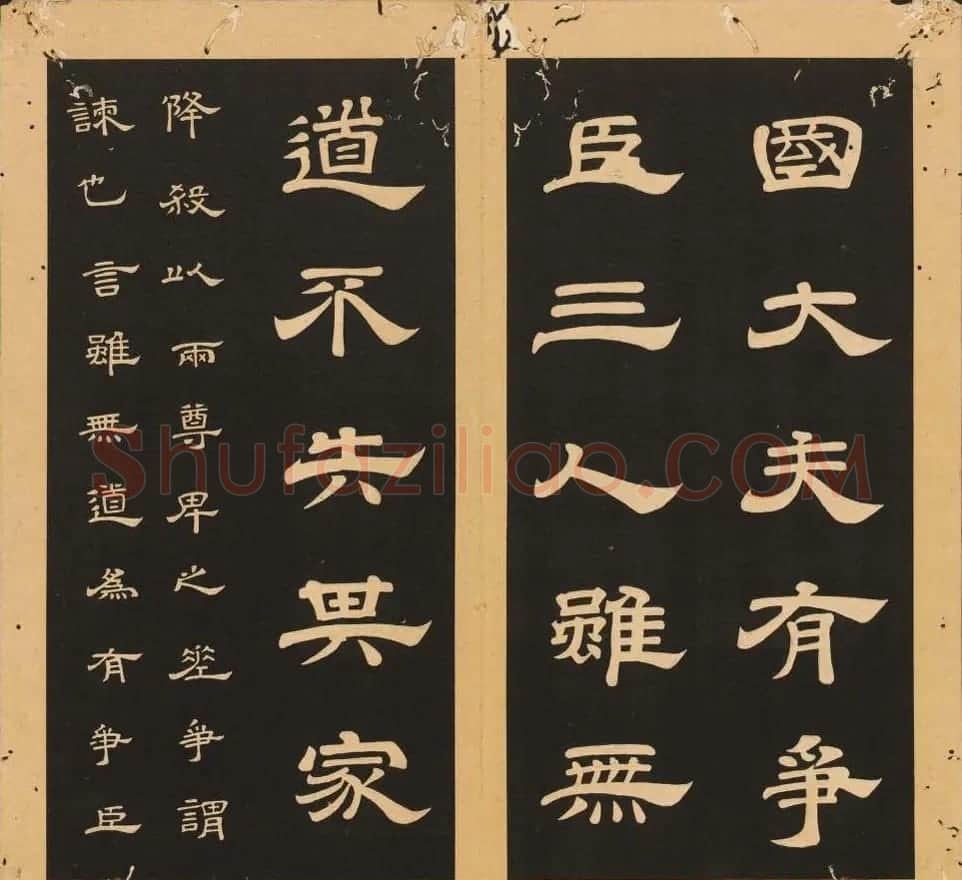 國大夫有爭
臣三人雖無
道不失其家
降殺以兩尊卑之差爭謂
諫也言雖無道為有爭臣
Shufaziliao.COM